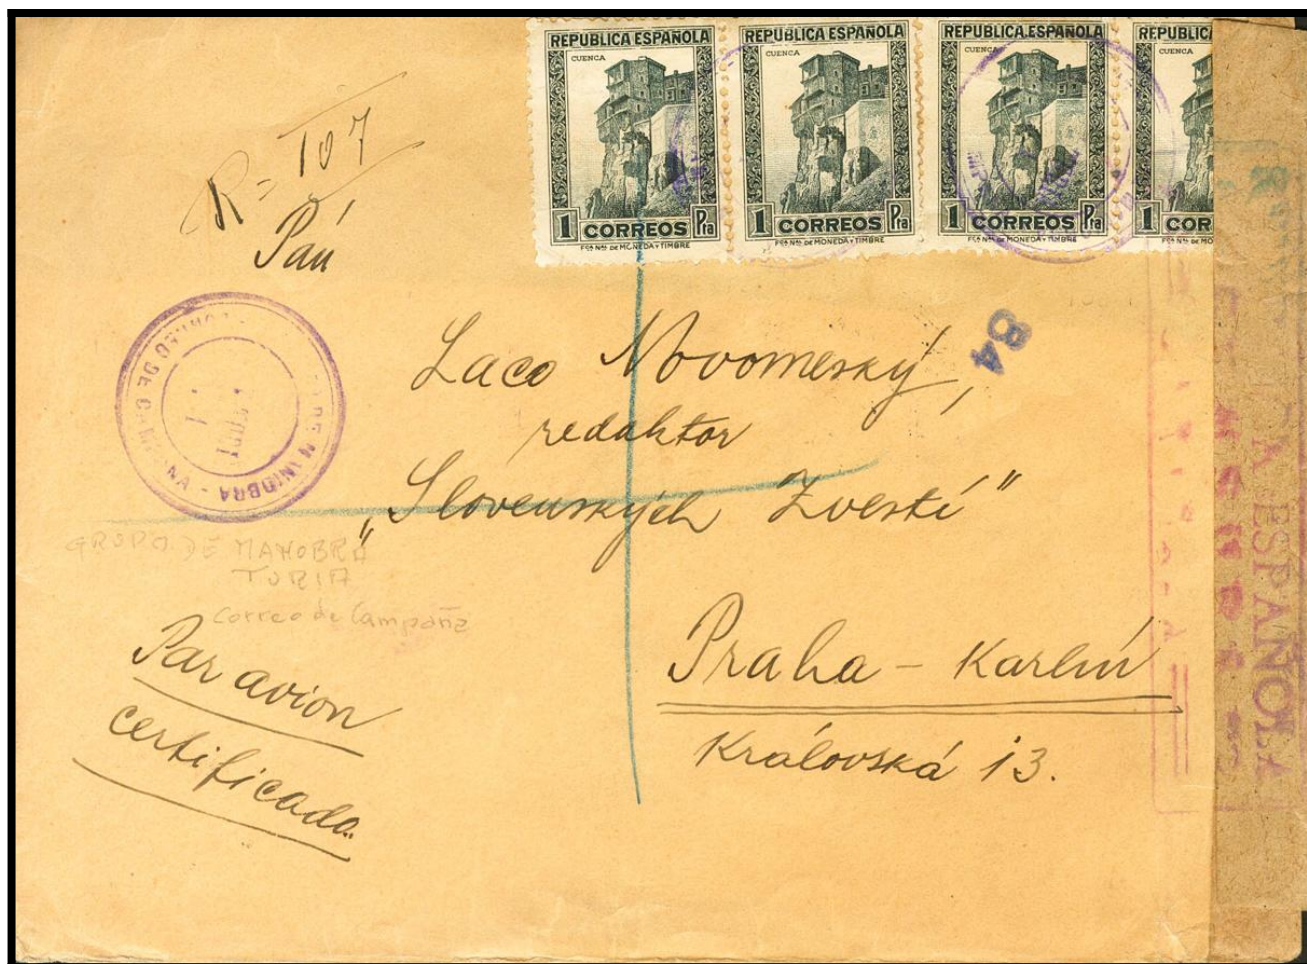 REPUBLICA ESPAÑOLA
CUENCA
1 CORREOS Pta
Fca Nal DE MONEDA Y TIMBRE
REPUBLICA ESPAÑOLA
CUENCA
1 CORREOS Pta
Fca Nal DE MONEDA Y TIMBRE
REPUBLICA ESPAÑOLA
CUENCA
1 CORREOS Pta
Fca Nal DE MONEDA Y TIMBRE
REPUBLICA
CUENCA
1 COR
Fca Nal DE MO
R=107
Pán
84
Laco Novomeský,
redaktor
„Slovenských Zvestí"
DE MANIOBRA - DE CAMPAÑA
GRUPO DE MANOBRA
TURIA
Correo de Campaña
Par avion
certificado.
Praha - Karlín
Královská 13.
ESPAÑOLA